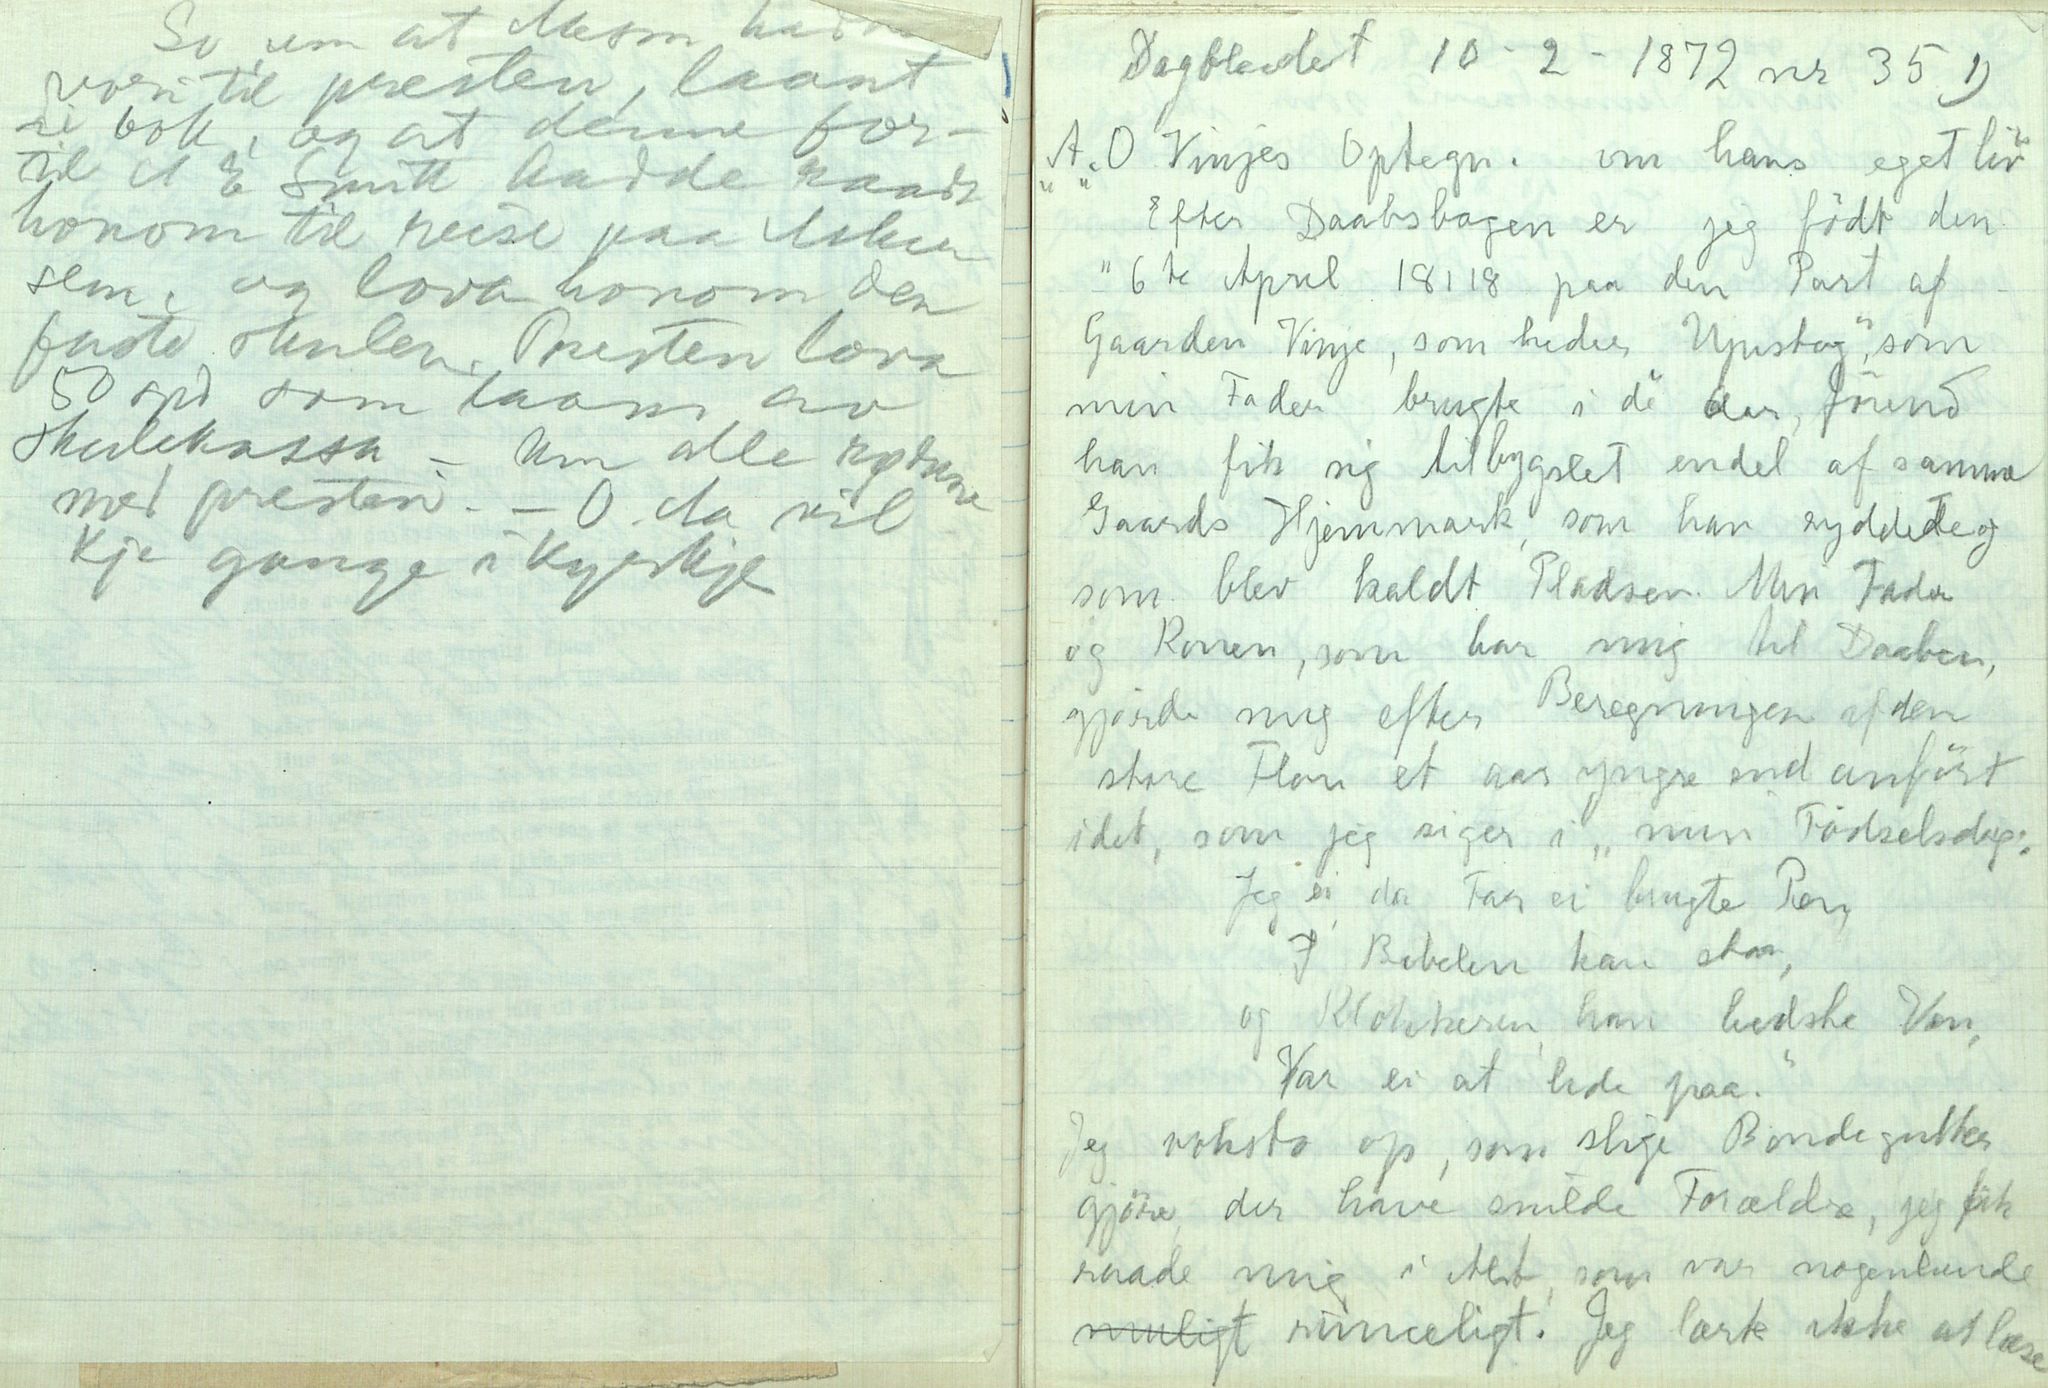 So um at Aasm hadde
vori til presten, laant
ei bok, og at denne for-
til A E Smitt hadde raadt
honom til reise paa Asker
sem. og lova honom den
faste skulen. Presten lova
50 spd som laans av
skulekassa – Um alle rydane
med presten. – O. Aa vil
kje gange i kyrkje
Dagbladet 10 - 2 - 1872 nr 35 1)
"A. O Vinjes Optegn. om hans eget liv"
" Efter Daabsbogen er jeg født den
" 6te April 1818 paa den Part af
Gaarden Vinje, som heder Upistog", som
min Fader brugte i de Aar, førend
han fik sig tilbygslet endel af samme
Gaards Hjemmark, som han ryddede og
som blev kaldt Pladsen. Min Fader
og Konen, som bar mig til Daaben,
gjorde mig efter Beregningen af den
store Flom et aar yngre end anført
idet, som jeg siger i „ min Fødselsdag":
Jeg ei, da Far ei brugte Pen,
I Bibelen kan staa,
og Klokkeren, han bedske Ven,
Var ei at lide paa."
Jeg voksto op, som slige Bondegutter
gjøre, der have snilde Forældre, jeg fik
raade mig i Alt, som var nogenlunde
muligt rimeligt. Jeg lærte ikke at læse